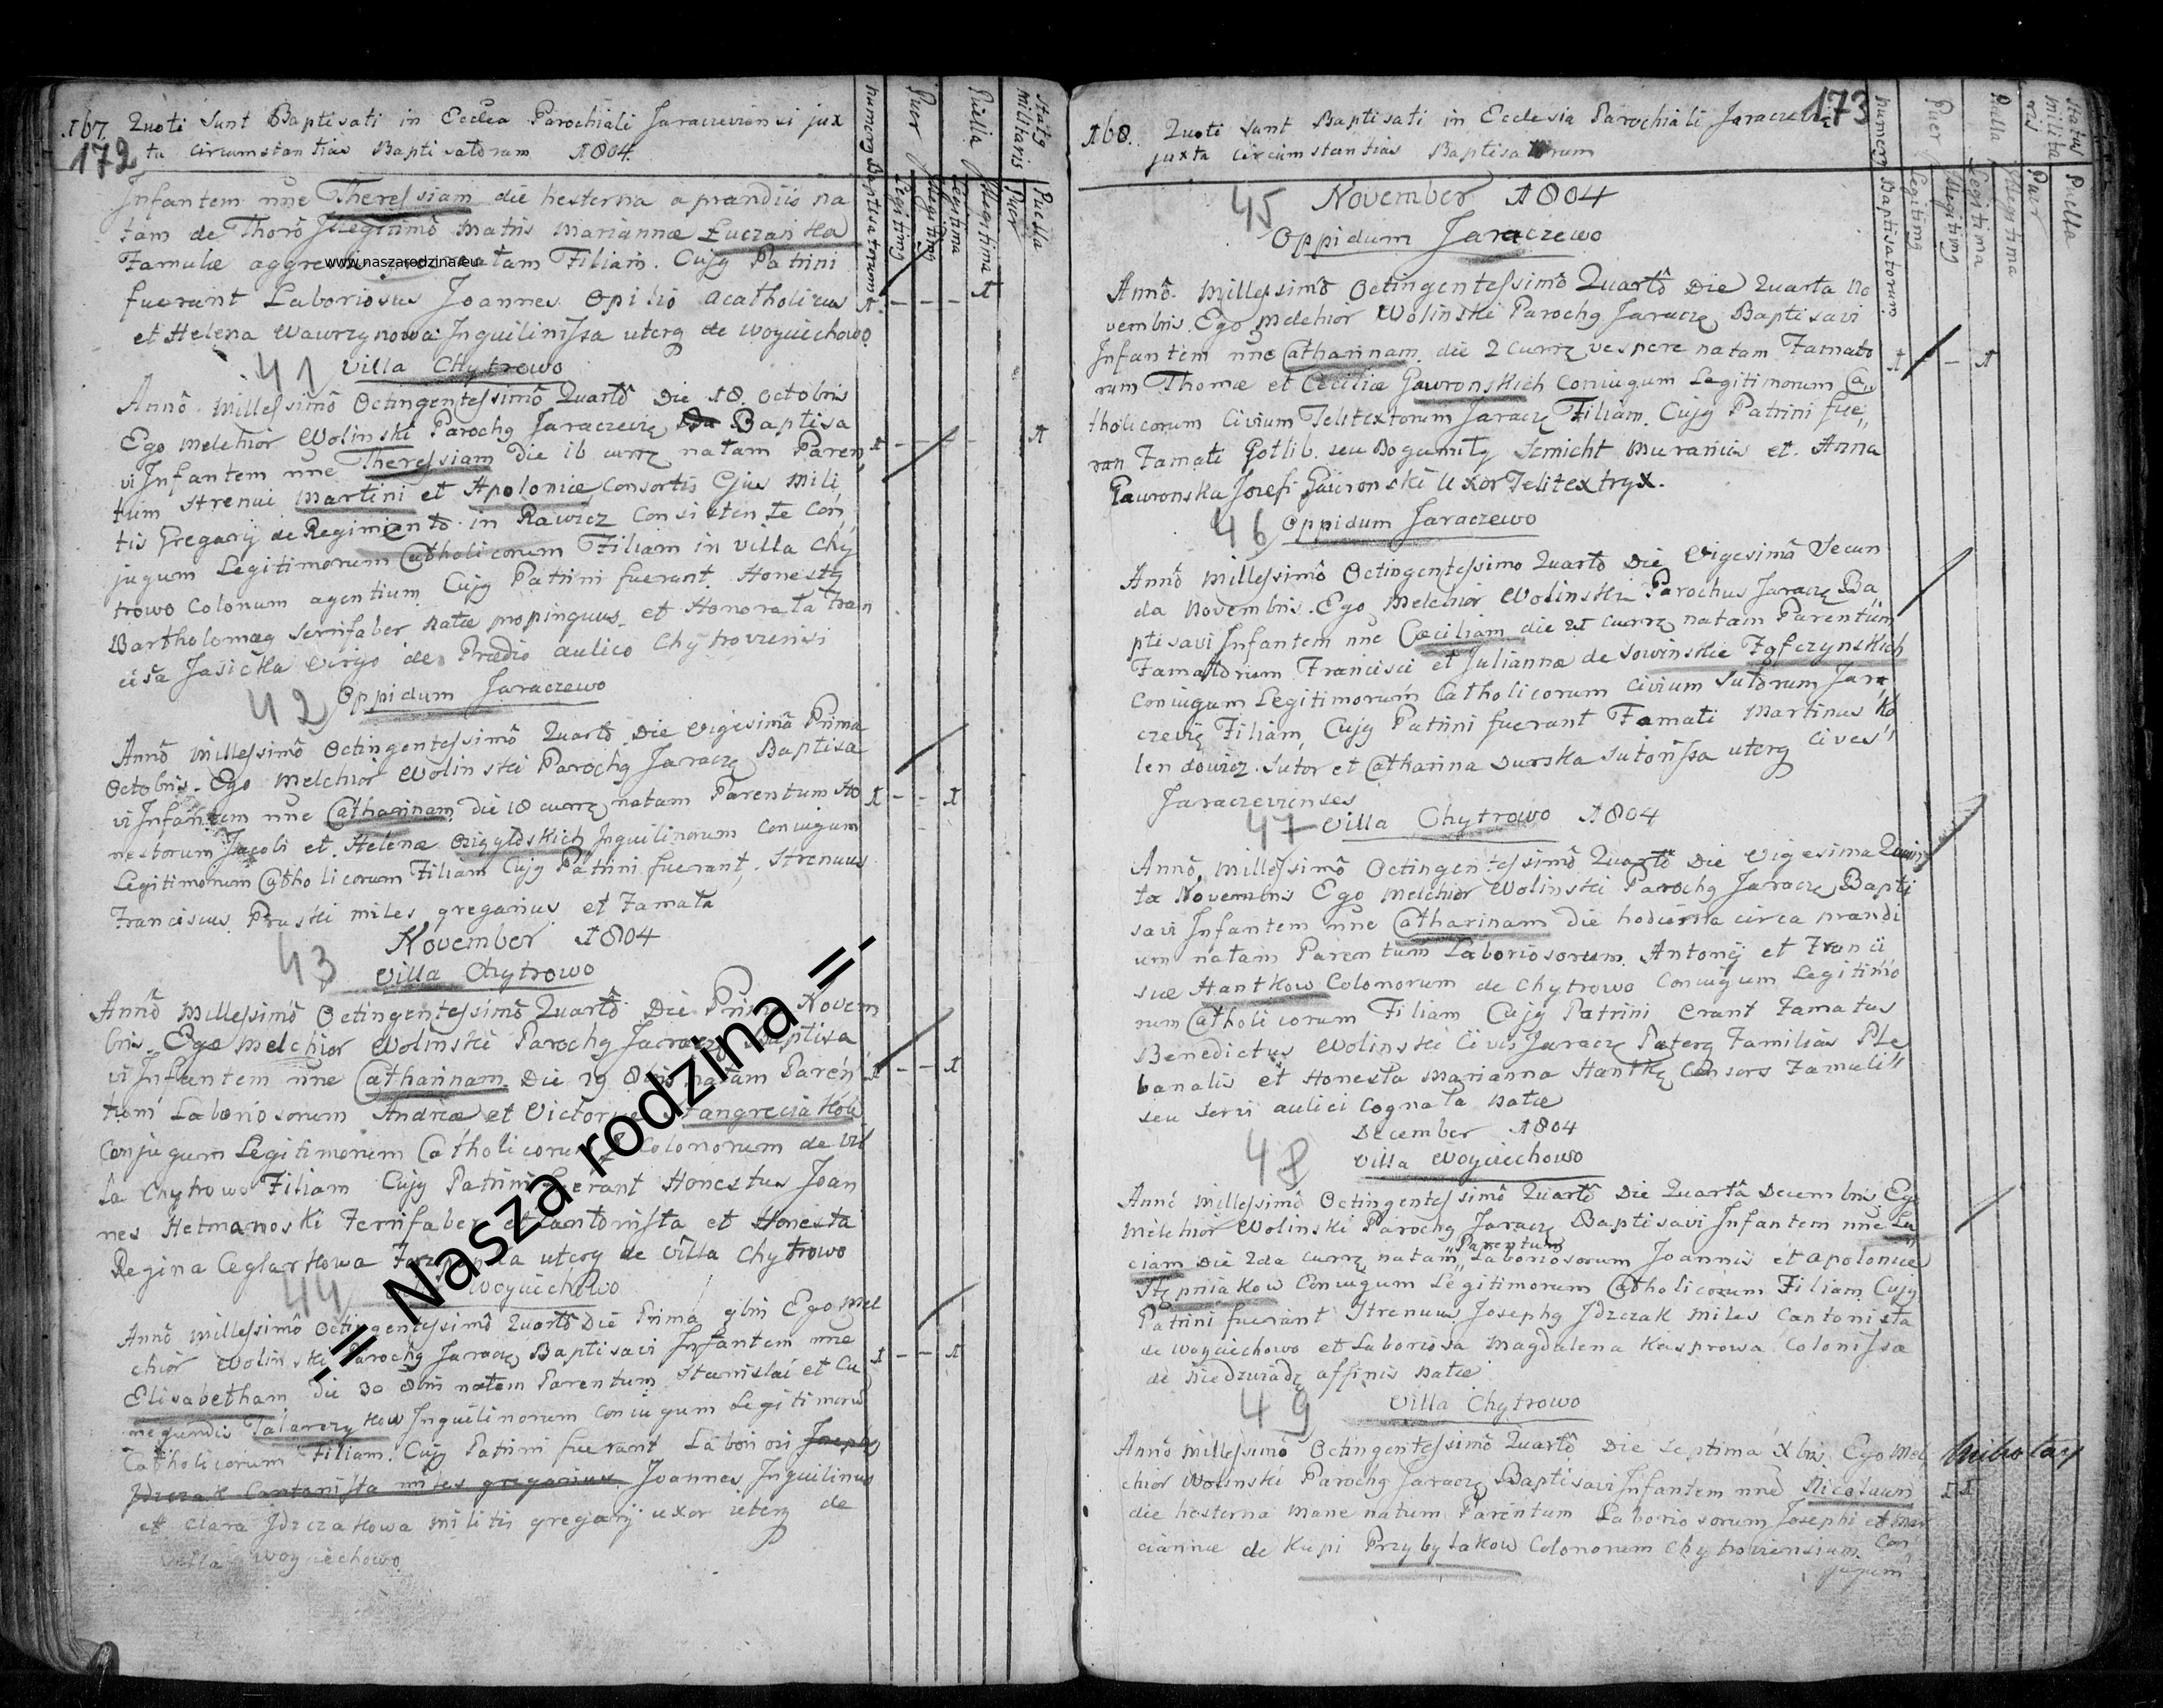 167. Quoti Sunt Baptisati in Eccl̃ea Parochiali Jaraczeviensi jux
172 ta circumstantias Baptisatorum 1804
numerg Baptisatorum
Puer Legitimg Illegitimg
Puella Legitima Illegitima
Statg militaris Puer Puella
Infantem nñe Theressiam die hesterna a prandiis na
tam de Thorô Illegitimô Matris Mariannæ Łuczanska
Famulæ natam Filiam. Cujg Patrini
www.naszarodzina.eu
fuerant Laboriosus Joannes Opilio acatholicus
et Helena Wawrzynowa Inquilinissa uterq de Woyciechowo
41 Villa Chytrowo
Annô Millessimô Octingentessimô Quartô Die 18. Octobris
Ego Melchior Wolinski Parochg Jaraczevię Baptisa
vi Infantem nñe Theressiam die 16 currę natam Paren
tum Strenui Martini et Apoloniæ Consortis Ejus Mili
tis Gregarij de Regimento in Rawicz Consistente Con
jugum Legitimorum Catholicorum Filiam in villa Chy
trowo Colonum agentium Cujg Patrini fuerant. Honestg
Bartholomæg Serrifaber natæ propinquus et Honorata Fran
cisca Jasicka Virgo de Prædio aulico Chytroviensi
42 Oppidum Jaraczewo
Annô Millessimô Octingentessimô Quartô Die Vigesimâ Prima
Octobris. Ego Melchior Wolinski Parochg Jaraczę Baptisa
vi Infantem nñe Catharinam die 18 currę natam Parentum Ho
nestorum Jacobi et Helenæ Inquilinorum Coniugum
Legitimorum Catholicorum Filiam Cujg Patrini fuerant. Strenuus
Franciscus Pruski miles gregarius et Famata
November 1804
43 Villa Chytrowo
Annô Millessimô Octingentessimô Quartô Die Prima Novem
bris. Ego Melchior Wolinski Parochg Jaraczę Baptisa
vi Infantem nñe Catharinam Die 29 8bris natam Paren
tum Laboriosorum Andreæ et Victoriæ
Conjugum Legitimorum Catholicorum Colonorum de vil
la Chytrowo Filiam Cujg Patrini fuerant Honestus Joan
nes Hetmanoski Ferrifaber et Cantonista et Honesta
Regina Ceglarkowa uterq de Villa Chytrowo
44 Woyciechowo
Annô Millessimô Octingentessimô Quartô Die Prima 9bris Ego Mel
chior Wolinski Parochg Jaraczę Baptisavi Infantem nñe
Elisabetham die 30 8bris natam Parentum Stanislai et Cu
negundis Talarczykow Inquilinorum Coniugum Legitimorũ
Catholicorum Filiam. Cujg Patrini fuerant Laboriosi Josephg
Idzczak Cantonista miles gregarius Joannes Inquilinus
et Clara Idzczakowa militis gregarij uxor uterq de
Villa Woyciechowo
-= Nasza rodzina =-
168. Quoti Sunt Baptisati in Ecclesia Parochiali 173
juxta circumstantias Baptisatorum
numerg Baptisatorum
Puer Legitimg Illegitimg
Puella Legitima Illegitima
Status militaris Puer Puella
45 November 1804
Oppidum Jaraczewo
Annô Millessimô Octingentessimô Quartô Die Quarta No
vembris Ego Melchior Wolinski Parochg Jaraczę Baptisavi
Infantem nñe Catharinam die 2 currę vespere natam Famato
rum Thomæ et Ceciliæ Gawronskich Coniugum Legitimorum Ca
tholicorum Civium Telitextorum Jaraczę Filiam. Cujg Patrini fue
rant Famati Gotlib seu Bogumiłg Szmicht Murarius et Anna
Gawronska Josefi Gawronski Uxor Telitextryx.
46 Oppidum Jaraczewo
Annô Millessimô Octingentessimo Quartô Die Vigesimâ Secun
da Novembris. Ego Melchior Wolinski Parochus Jaraczę Ba
ptisavi Infantem nñe Cæciliam die 21 currę natam Parentum
Famatorum Francisci et Juliannæ de Sowinskie
Coniugum Legitimorum Catholicorum Civium Sutorum Jara
czevię Filiam, Cujg Patrini fuerant Famati Martinus Ko
lendowicz Sutor et Catharina Durska Sutorissa uterq Cives
Jaraczevienses
47 Villa Chytrowo 1804
Annô Millessimô Octingentessimô Quartô Die Vigesima Quin
ta Novembris Ego Melchior Wolinski Parochg Jaraczę Bapti
savi Infantem nñe Catharinam die hodierna circa prandi
um natam Parentum Laboriosorum Antonij et Franci
scæ Hantkow Colonorum de Chytrowo Coniugum Legitimo
rum Catholicorum Filiam Cujg Patrini erant Famatus
Benedictus Wolinski Civis Jaraczę Paterq Familias Ple
banalis et Honesta Marianna Hantkę Consors Famuli
seu Servi aulici Cognata natæ
December 1804
48 Villa Woyciechowo
Annô Millessimô Octingentessimô Quartô Die Quartâ Decembris Ego
Melchior Wolinski Parochg Jaraczę Baptisavi Infantem nñe Lu
ciam Die 2da currę natam Parentum Laboriosorum Joannis et Apoloniæ
Stępniakow Coniugum Legitimorum Catholicorum Filiam Cujg
Patrini fuerant Strenuus Josephg Idzczak Miles Cantonista
de Woyciechowo et Laboriosa Magdalena Kasprowa Colonissa
de Niedzwiadę affinis natæ
49 Villa Chytrowo
Annô Millessimô Octingentessimô Quartô Die Septima Xbris. Ego Mel
chior Wolinski Parochg Jaraczę Baptisavi Infantem nñe Nicolaum
Mikołay
die hesterna Mane natum Parentum Laboriosorum Josephi et Mar
ciannæ de Kupi Przybyłakow Colonorum Chytroviensium Con
jugum